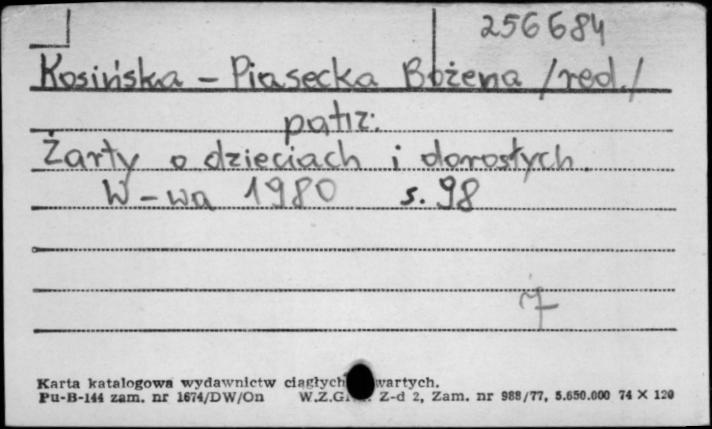 256684
Kosińska - Piasecka Bożena /red./
patrz:
Żarty o dzieciach i dorosłych.
W-wa 1980 s. 98
7
Karta katalogowa wydawnictw ciągłych wartych.
Pu-B-144 zam. nr 1674/DW/On W.Z.G. Z-d 2, Zam. nr 988/77, 5.650.000 74 X 120